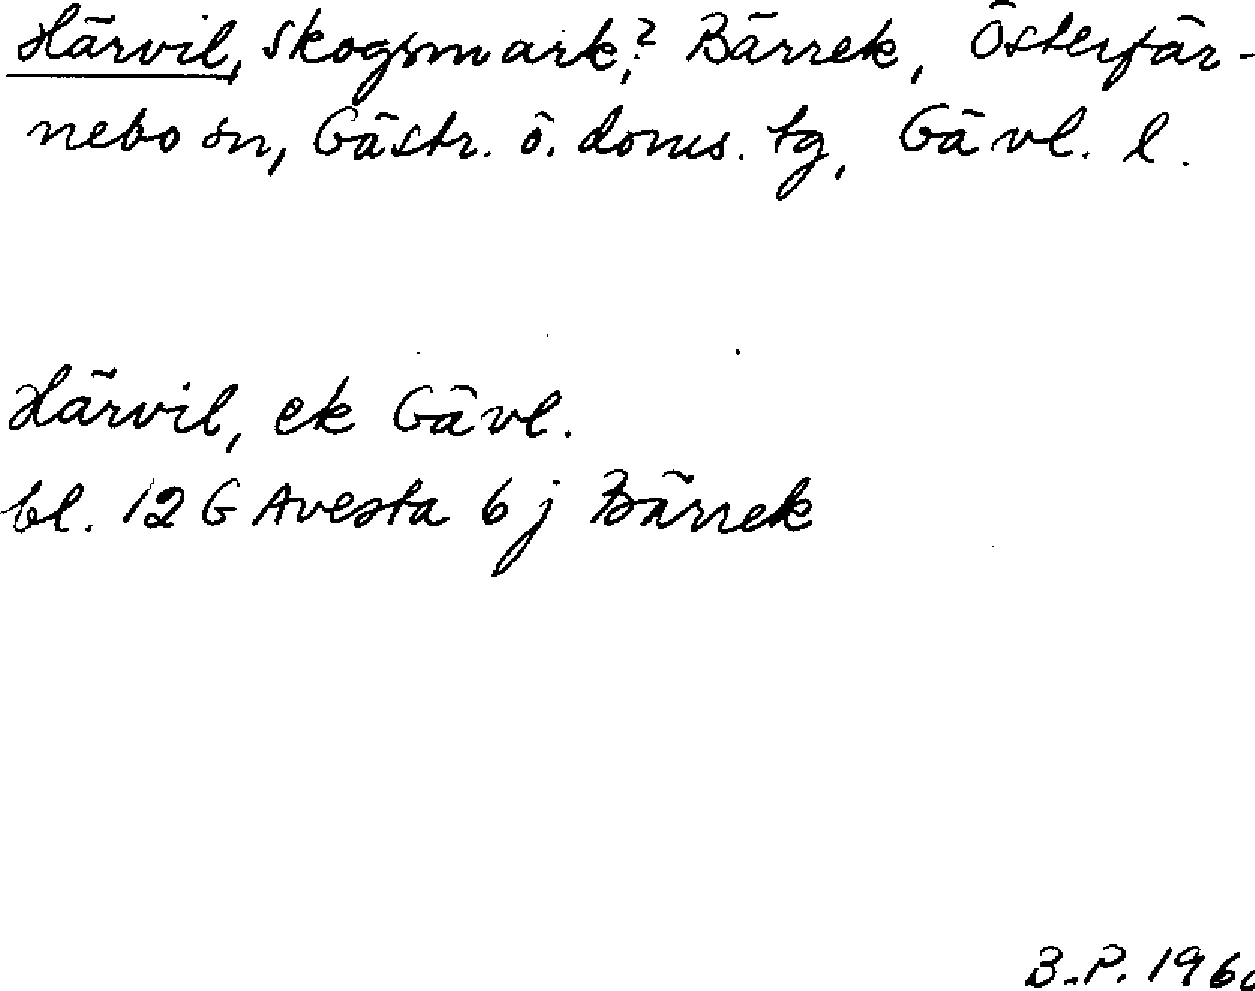 Härvil, skogsmark,? Bärrek, Österfär-
nebo sn, Gästr. ö. doms. tg, Gävl. l.
Härvil, ek Gävl.
bl. 12 G Avesta 6 j Bärrek
B.P. 196